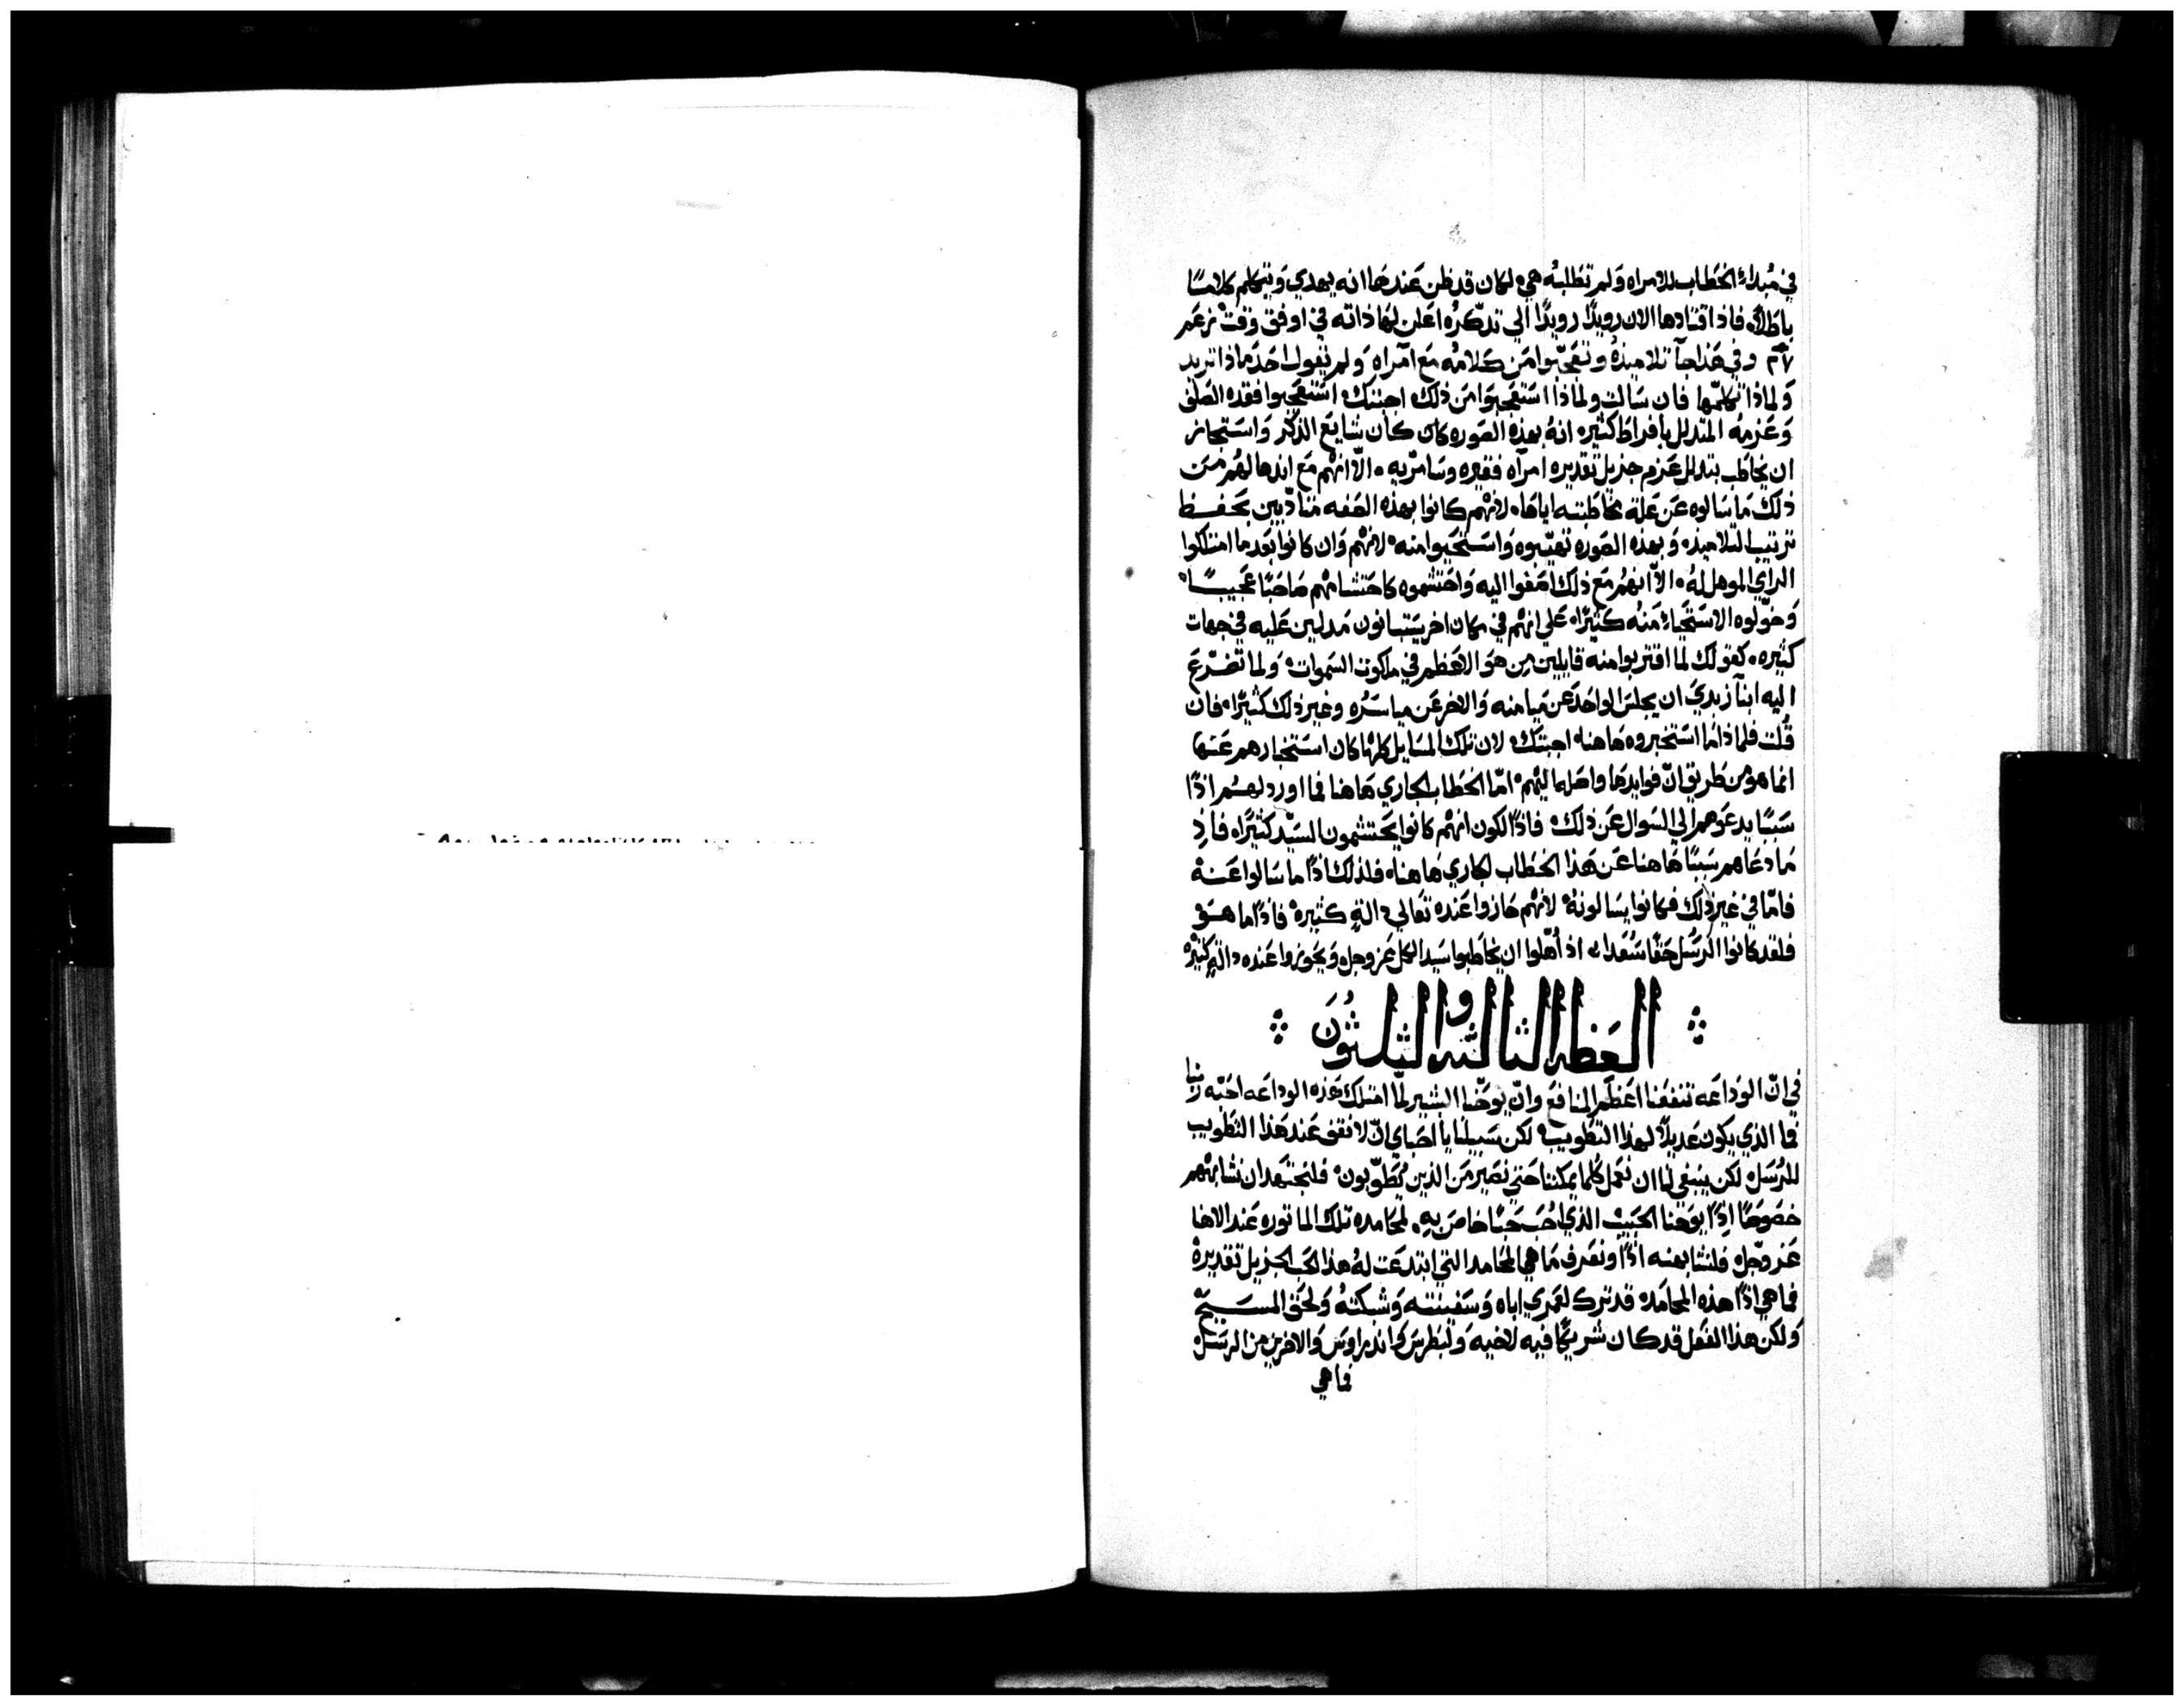 في مُبداءِ الخطاب للامراه وَلم تطلبهُ هيَ لكان قد ظن عَندهَا انه يهدي وَيتكلم كلامًا
باطلًا، فاذا اقتادها الان رويدًا رويدًا الى تذكّرُه اعَلن لهَا ذاته في اوفق وَقتْ نزعَم
٢٧ وفي هَذا جآ تلاميذهُ وتعَجّبوا مَن كلامهُ مَع آمراه وَلم يقول احَد مَاذا تريد
وَلماذا تكلمّها فان سَالت ولماذا استعَجبَوا من ذلك اجبتك استعَجبوا فقده الصَلف
وَعَزمهُ المتدلل بافراط كثيره انهُ بهذه الصَوره كان شايعَ الذكر وَاستجاز
ان يخاطب بتدلل عَزم جزيل تقديره امرآه فقيره وسَامرّيه ۰ الّا انهم مَع اندها لهُم مَن
ذلك مَا سَالوه عَن عَلة مخاطبته اياهَا، لانهم كانوا بهذه الصَفه متادّبين بحَفظ
ترتيب التلاميذ، وَبهذه الصَوره تهيّبوه وَاستحَيوا منه لانهُم وَان كانوا بَعَد ما امتلكوا
الراي الموهل لهُ، الّا انهُم مَع ذلك اصَغوا اليه وَاحتشموه كاحتشامهُم صَاحبًا عَجيبًا
وَخوّلوه الاستحَياءِ مَنهُ كثيرًا، عَلى انهُم في مكان اخر يتبانون مَدلين عَليه في جهات
كثيره، كقولك لما اقتربوا منه قايلين من هوَ الاعَظم في ملكوت السَموات، وَلما تضرّعَ
اليه ابنآ زبدي ان يجلسَ الواحَد عَن ميامنه وَالاخر عَن مياسَرُه وغير ذلك كثيرًا، فان
قُلت فلماذا ما استخبروه هَاهنا، اجبتك لان تلك المسَايل كلهَا كان استخبارهم عَنها
انما هوَ من طريق انّ فوايدهَا واصَله اليهم، امّا الخطاب الجاري هَاهنا فما اورد لهُم اذًا
سَببًا يدعَوهم الي السَوال عَن ذلك، فاذًا لكون انهُم كانوا يحتشمون السَيّد كثيرًا، فاذِ
مَا دعَاهم سَببًا هَاهنا عَن هَذا الخطاب الجاري هَاهنا، فلذلك اذًا ما سَالوا عَنهُ
فامّا في غير ذلك فكانوا يسَالونهُ، لانهُم حَازوا عَنده تعَالي دالةٍ كثيره، فاذًا ما هوَ
فلقد كانوا الرسُل حَقًا سُعَدا، اذ اُهّلوا ان يخاطبوا سَيد الكل عَز وجل، وَيحوزوا عَنده دالةٍ كثيرْه
العَظه الثالثه والثلثوُنَ
في انّ الوَداعَه تنفعَنا اعَظم المنافعَ وانّ يوحَنّا البشير لمّا امتلك هَذه الوداعَه احَبّه ربّنا
فما الذي يكون عَديلًا لهذا التطويب، لكن سَبيلنا يا احَبّاي انّ لا نقف عَند هَذا التطويب
للرُسَل، لكن ينبغي لنا ان نعَمل كلّما يمكننا حَتي نصَير مَن الذين يُطوّبون، فلنجتهَد ان نشابهُهم
خصَوصًا اِذًا يوحَنا الحَبيبْ الذي اُحُبَ حَبًّا خاصَ بهِ، لمحَامده تلك الماثوره عَند الالاهَ
عَز وجَل، فلنشابهنه اذًا ونعَرف مَا هي المحَامد التي ابتدعَت لهُ هَذا الحَب الجزيل تقديرهُ
فما هي اذًا هذه المحَامد، قد ترك لعَمري اباه وَسَفينته وَشبكتهُ وَلحَق المسَيحّ
وَلكن هَذا الفعَل قد كان شريكًا فيه لاخيه وَلبطرسَ وَاندراوسَ وَالاخرين من الرسُل
فما هي